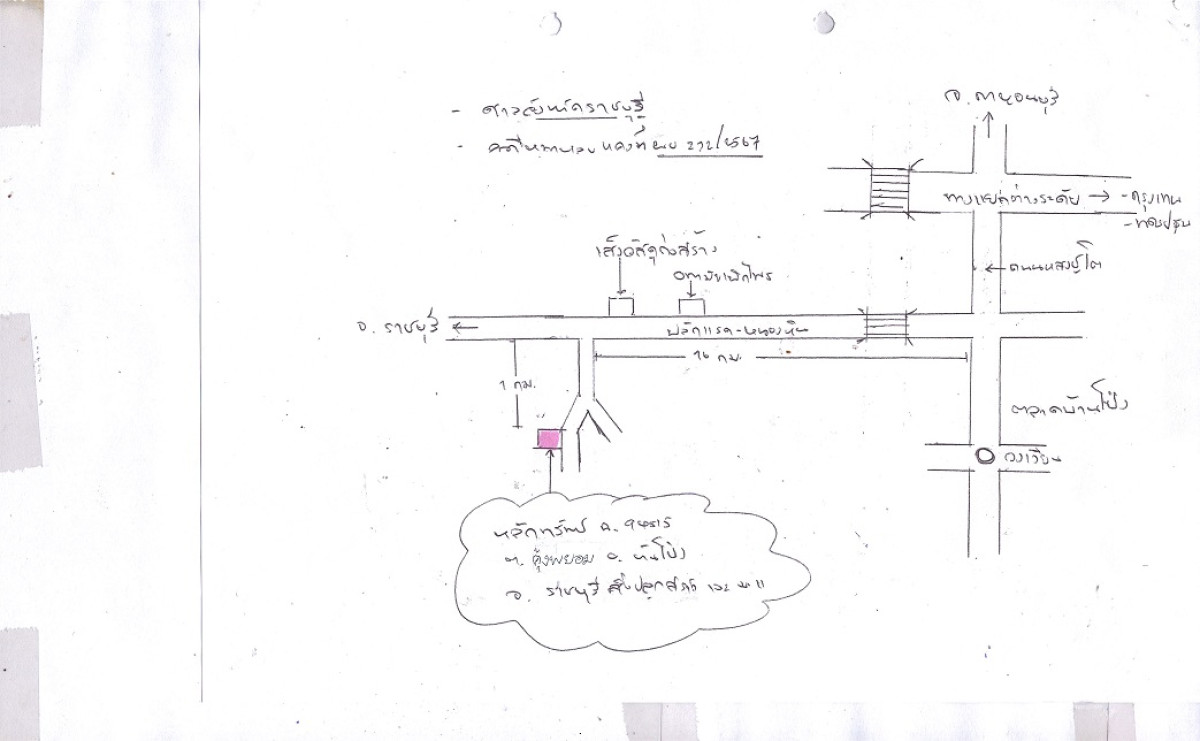 - ศาลจังหวัดราชบุรี
- คดีหมายเลขแดงที่ ผบ 272/2567
จ. กาญจนบุรี
ทางแยกต่างระดับ → - กรุงเทพ
- นครปฐม
← ถนนแสงชูโต
เสี่ยวัสดุก่อสร้าง
จ. ราชบุรี ←
ปลักแรด-หนองหิน
16 กม.
1 กม.
ตลาดบ้านโป่ง
วงเวียน
หลักทรัพย์ ฉ.
ต. คุ้งพยอม อ. บ้านโป่ง
จ. ราชบุรี สิ่งปลูกสร้าง